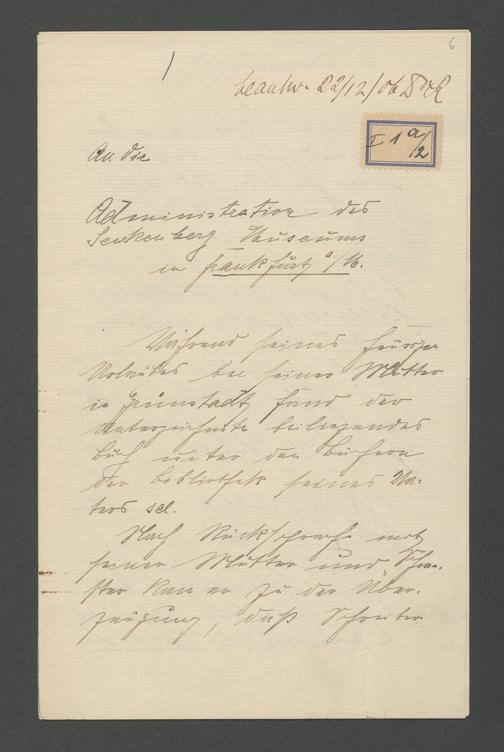 6
beantw. 22/12/06
I 1 a/2
An die
Administration des
Senkenberg Museums
in Frankfurt a/M.
Während seines
Urlaubes bei seiner Mutter
in Grünstadt fand der
Unterzeichnete beiliegendes
Buch unter den Büchern
der Bibliothek seines Va-
ters sel.
Nach Rücksprache mit
seiner Mutter und Schwe-
ster kam er zu der Über-
zeugung, daß Schreiber